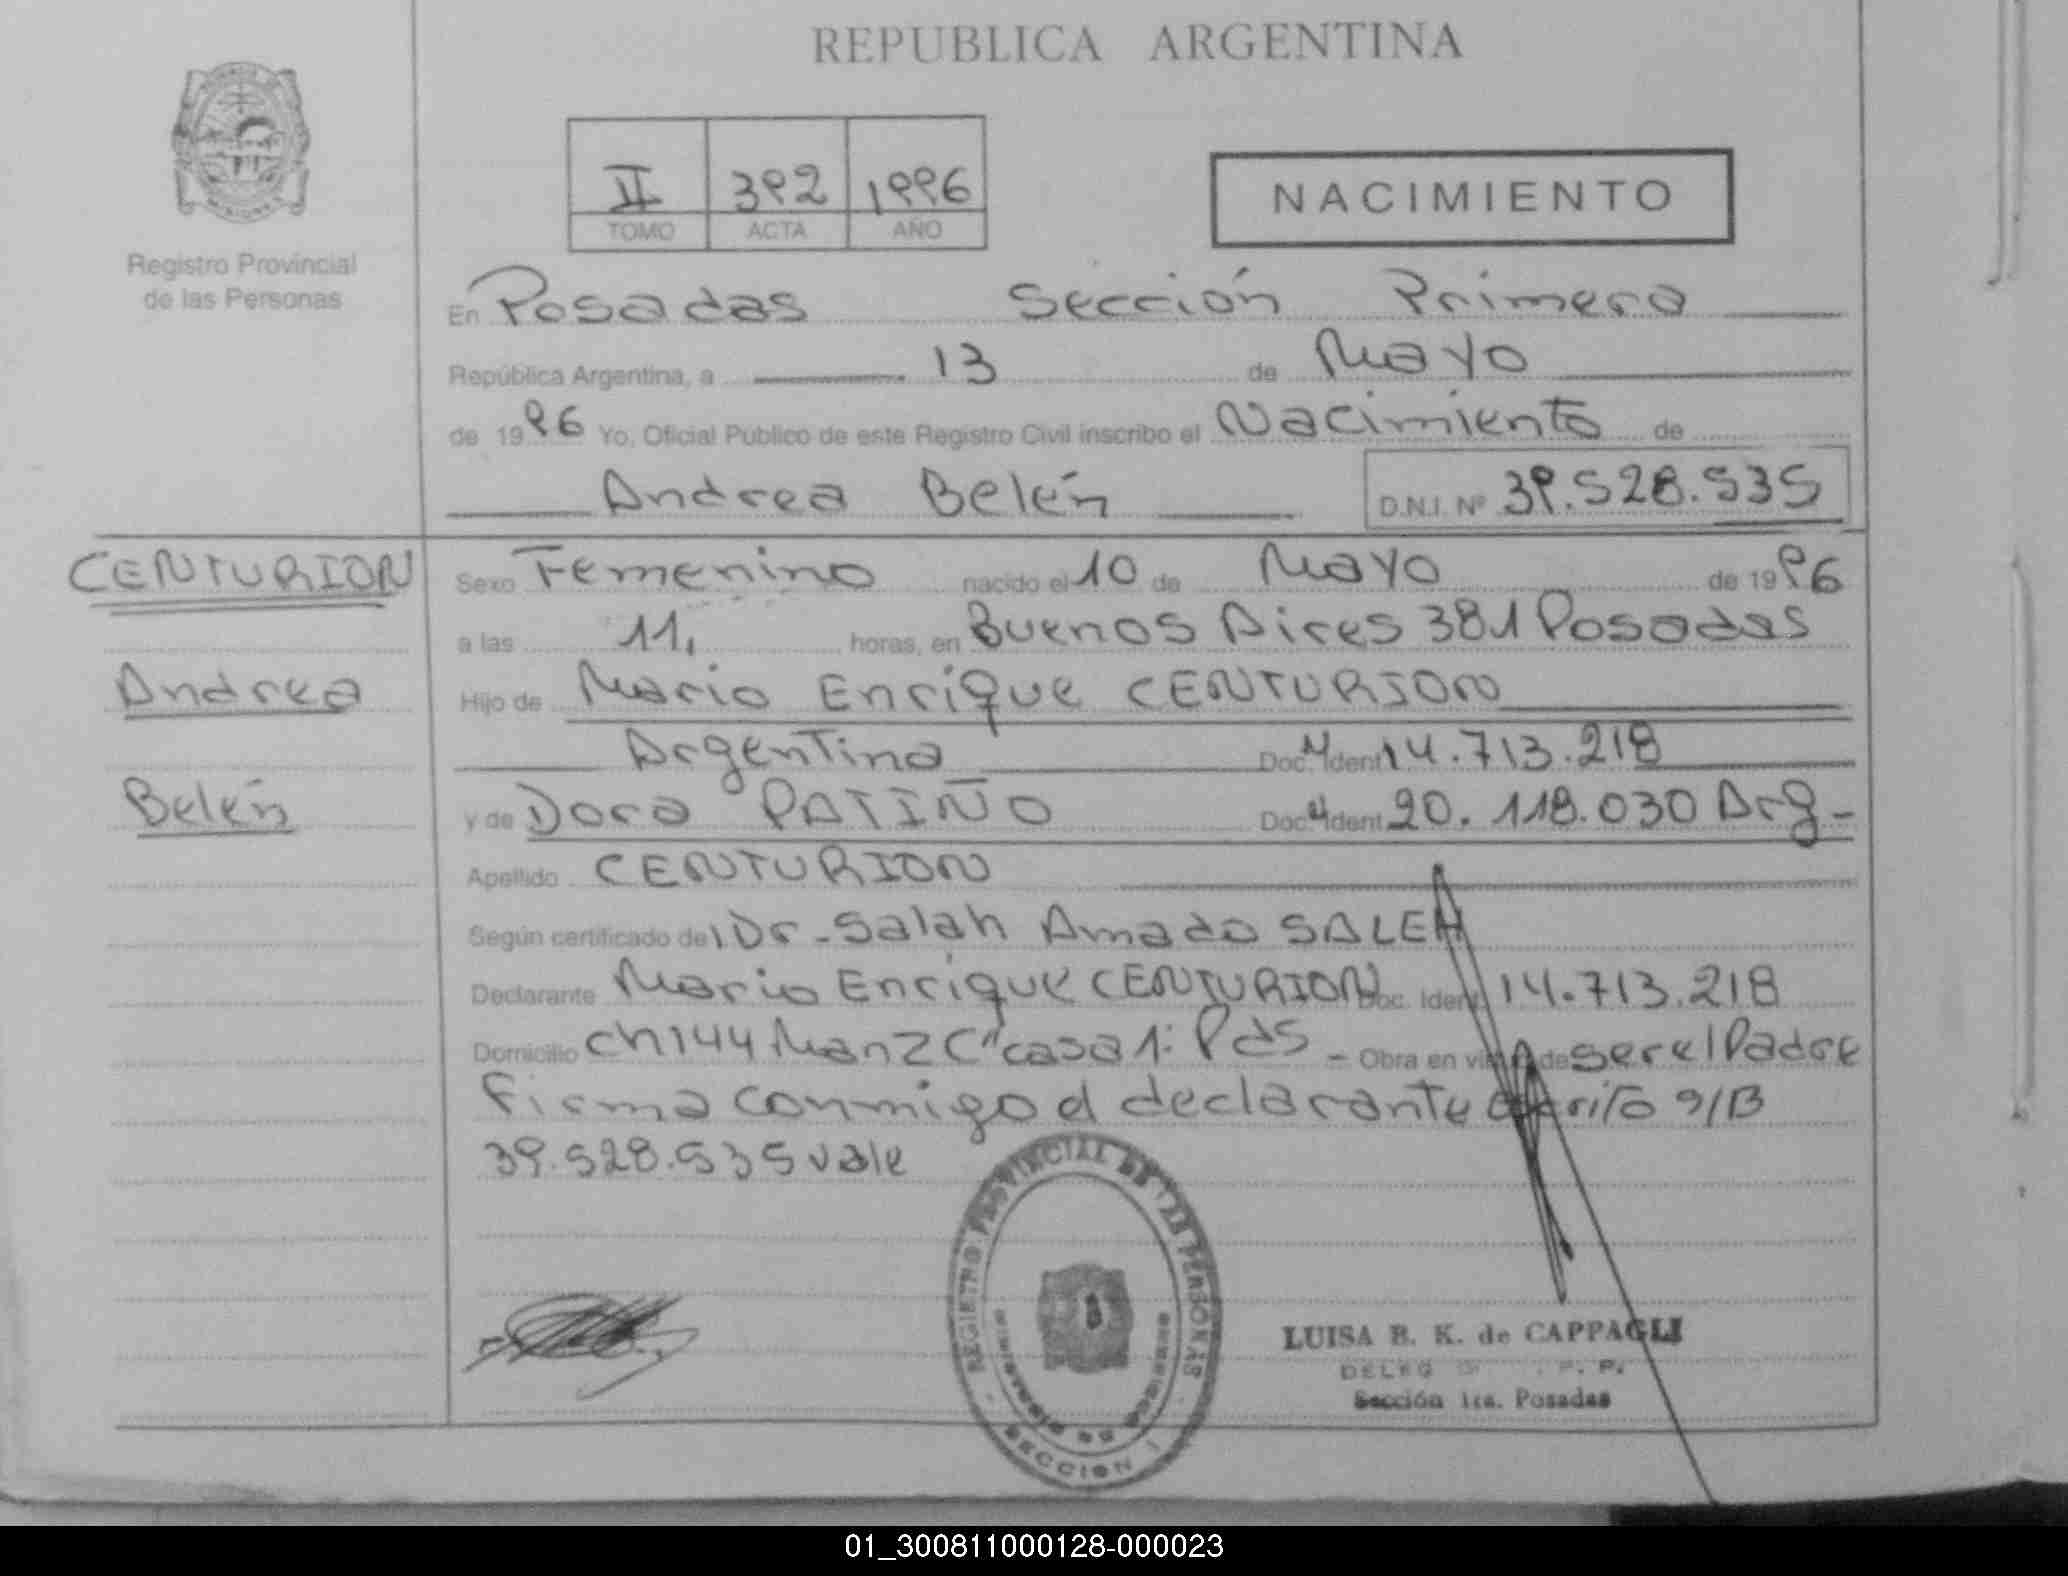 REPUBLICA ARGENTINA
MISIONES
Registro Provincial
de las Personas
II 392 1996
TOMO ACTA AÑO
NACIMIENTO
En Posadas Sección Primera
República Argentina, a 13 de Mayo
de 1996 Yo, Oficial Público de este Registro Civil inscribo el Nacimiento de
Andrea Belén D.N.I. Nº 39.528.535
CENTURION
Andrea
Belén
Sexo Femenino nacido el 10 de Mayo de 1996
a las 11, horas, en Buenos Aires 381 Posadas
Hijo de Mario Enrique CENTURION
Argentino Doc. Ident 14.713.218
y de Dora PATIÑO Doc. Ident 20.118.030 Arg-
Apellido CENTURION
Según certificado de Dr- Salah Amado SALEH
Declarante Mario Enrique CENTURION Doc. Ident 14.713.218
Domicilio Ch 144 Man Z C" casa 1: Pds - Obra en de ser el Padre
Firma conmigo el declarante S/B
39.528.535 vale
REGISTRO PROVINCIAL DE LAS PERSONAS
SECCION I
LUISA B. K. de CAPPAGLI
DELEG P. P.
Sección 1ra. Posadas
01_300811000128-000023